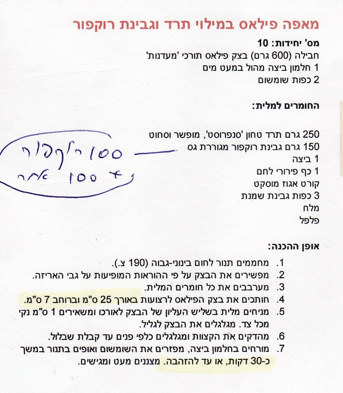 מאפה פילאס במילוי תרד וגבינת רוקפור
מס' יחידות: 10
חבילה (600 גרם) בצק פילאס תורכי 'מעדנות'
1 חלמון ביצה מהול במעט מים
2 כפות שומשום
החומרים למלית:
250 גרם תרד טחון 'סנפרוסט', מופשר וסחוט
150 גרם גבינת רוקפור מגוררת גס
1 ביצה
1 כף פירורי לחם
קורט אגוז מוסקט
3 כפות גבינת שמנת
מלח
פלפל
500 רוקפור
100
אופן ההכנה:
1. מחממים תנור לחום בינוני-גבוה (190 צ').
2. מפשירים את הבצק על פי ההוראות המופיעות על גבי האריזה.
3. מערבבים את כל חומרים המלית.
4. חותכים את בצק הפילאס לרצועות באורך 25 ס"מ וברוחב 7 ס"מ.
5. מניחים מלית בשליש העליון של הבצק לאורכו ומשאירים 1 ס"מ נקי
מכל צד. מגלגלים את הבצק לגליל.
6. מהדקים את הקצוות ומגלגלים כלפי פנים עד קבלת שבלול.
7. מורחים בחלמון ביצה, מפזרים את השומשום ואופים בתנור במשך
כ-30 דקות, או עד להזהבה. מצננים מעט ומגישים.